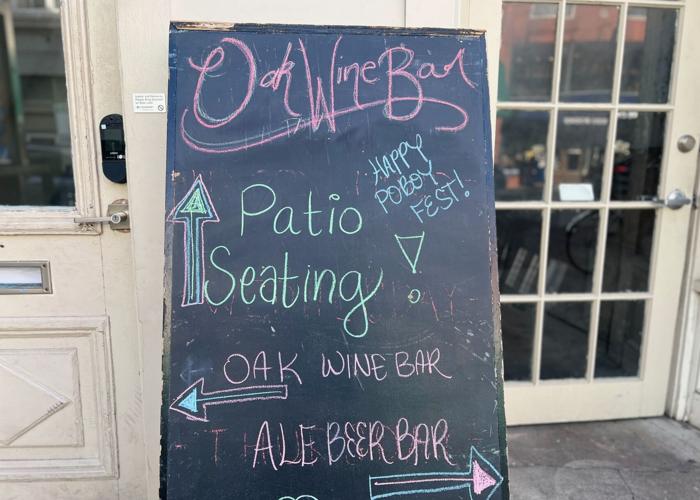 Oak Wine Bar
HAPPY
POBOY
FEST!
Patio
Seating!
OAK WINE BAR
ALE BEER BAR